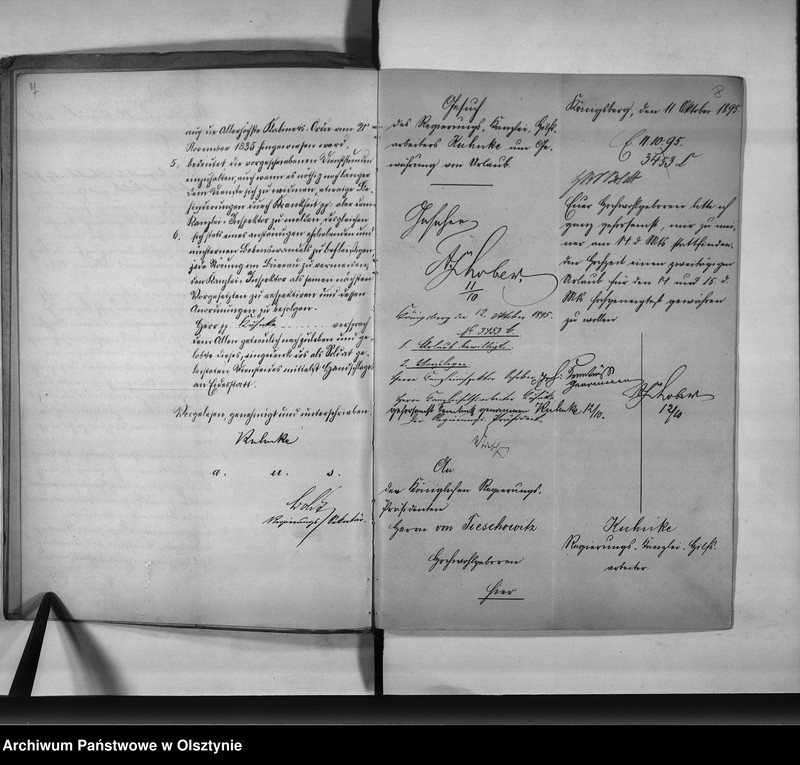 7
auf die Allerhöchste Kabinets-Ordre vom 21ten
November 1835 hingewiesen ward,
5. bedeutet die vorgeschriebenen Dienststunden
einzuhalten, auch wenn es nöthig noch länger
dem Dienste sich zu widmen, etwaige Be-
hinderungen durch Krankheit pp. aber dem
Kanzlei-Inspektor zu melden, desgleichen
6. sich stets eines anständigen ehrliebenden und
nüchternen Lebenswandels zu befleißigen
jede Störung im Büreau zu vermeiden,
den Kanzlei-Inspektor als seinen nächsten
Vorgesetzten zu respektiren und dessen
Anordnungen zu befolgen.
Herr pp. Kuhnke versprach
dem Allen getreulich nachzuleben und ge-
lobte dieses, eingedenk des als Soldat ge-
leisteten Diensteides mittelst Handschlages
an Eidesstatt.
Vorgelesen, genehmigt und unterschrieben.
Kuhnke
a. u. s.
Regierungs-Sekretär.
Gesuch
des Regierungs-Kanzlei-Hilfs-
arbeiters Kuhnke um Ge-
währung von Urlaub.
Schober
11/10
Königsberg den 12. Oktober 1895.
No 3453 C.
1. Urlaub bewilligt.
2. Vorzulegen:
Herrn Kanzleiinspektor Schober
Herrn Kanzleihilfsarbeiter Kuhnke
Kuhnke 12/10.
Der Regierungs-Präsident.
An
den Königlichen Regierungs-
Präsidenten
Herrn von Tieschowitz
Hochwohlgeboren
Hier
8
Königsberg, den 11 Oktober 1895
E 11.10.95.
3453 C
Euer Hochwohlgeboren bitte ich
ganz gehorsamst, mir zu mei-
ner am 14 d Mts stattfinden-
den Hochzeit einen zweitägigen
Urlaub für den 14 und 15. d.
Mts hochgeneigtest gewähren
zu wollen.
Schober
12/10
Kuhnke
Regierungs-Kanzlei-Hilfs-
arbeiter
Archiwum Państwowe w Olsztynie